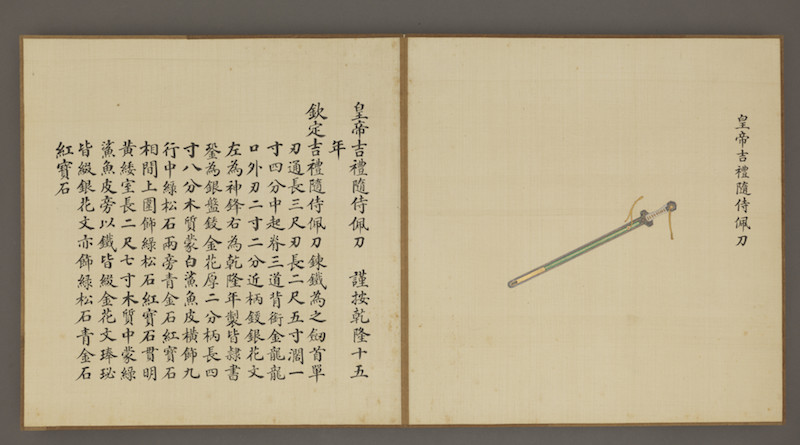 皇帝吉禮隨侍佩刀
皇帝吉禮隨侍佩刀　謹按乾隆十五
年
欽定吉禮隨侍佩刀鍊鐵為之劒首單
刃通長三尺刃長二尺五寸濶一
寸四分中起脊三道背銜金龍龍
口外刃二寸二分近柄鋄銀花文
左為神鋒右為乾隆年製皆隸書
銎為銀盤鋄金花厚二分柄長四
寸八分木質蒙白鯊魚皮橫飾九
行中綠松石兩旁青金石紅寶石
相間上圍飾綠松石紅寶石貫明
黃緌室長二尺七寸木質中蒙綠
鯊魚皮旁以鐵皆綴金花文琫珌
皆綴銀花文亦飾綠松石青金石
紅寶石